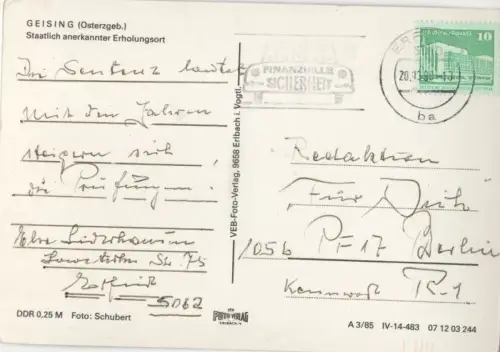 GEISING (Osterzgeb.)
Staatlich anerkannter Erholungsort
Die Sentenz lautet
Mit den Jahren
steigern sich
die Prüfungen.
Str. 75
5062
DDR 0,25 M Foto: Schubert
VEB-Foto-Verlag, 9658 Erlbach i. Vogtl.
FINANZIELLE
SICHERHEIT
10
ba
Redaktion
"Für Dich"
1056 PF 17 Berlin
Kennwort R-1
VEB
FOTO-VERLAG
ERLBACH/V.
A 3/85 IV-14-483 07 12 03 244